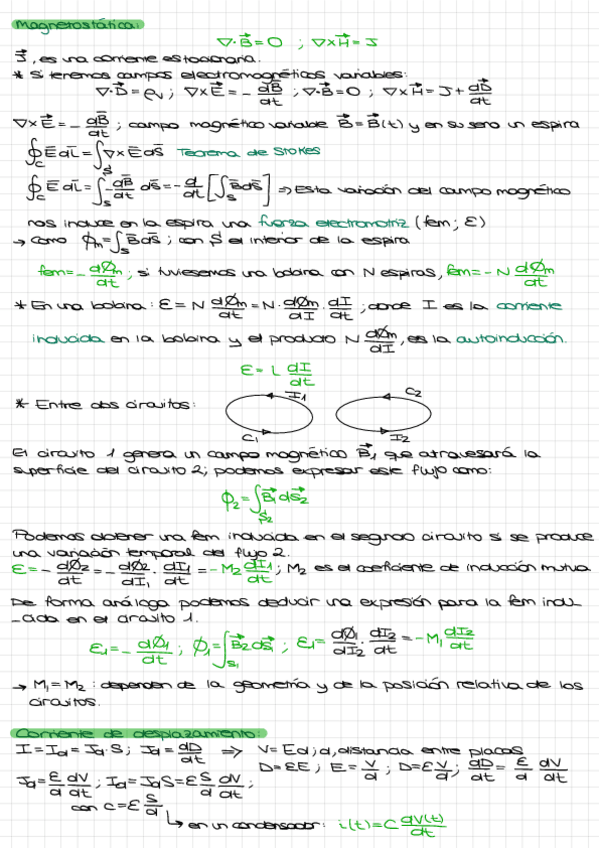 Magnetostática:
∇·B⃗ = 0 ; ∇×H⃗ = J
J⃗, es una corriente estacionaria.
* Si tenemos campos electromagnéticos variables:
∇·D⃗ = ρv ; ∇×E⃗ = - dB⃗/dt ; ∇·B⃗ = 0 ; ∇×H⃗ = J + dD⃗/dt
∇×E⃗ = - dB⃗/dt ; campo magnético variable B⃗ = B⃗(t) y en su seno un espira
∮c E dL = ∫s ∇×E dS Teorema de Stokes
∮c E dL = ∫s -dB/dt dS = - d/dt [∫s B dS] ⇒ Esta variación del campo magnético
nos induce en la espira una fuerza electromotriz (fem; ε)
→ como ϕm = ∫s B dS ; con S el interior de la espira
fem = - dϕm/dt ; si tuviesemos una bobina con N espiras, fem = - N dϕm/dt
* En una bobina: ε = N dϕm/dt = N · dϕm/dI · dI/dt ; donde I es la corriente
inducida en la bobina y el producto N dϕm/dI, es la autoinducción.
ε = L dI/dt
* Entre dos circuitos: I1 C2
C1 I2
El circuito 1 genera un campo magnético B⃗1 que atravesará la
superficie del circuito 2; podemos expresar este flujo como:
ϕ2 = ∫s2 B⃗1 dS⃗2
Podemos obtener una fem inducida en el segundo circuito si se produce
una variación temporal del flujo 2.
ε = - dϕ2/dt = - dϕ2/dI1 · dI1/dt = -M2 dI1/dt ; M2 es el coeficiente de inducción mutua
De forma análoga podemos deducir una expresión para la fem indu
-cida en el circuito 1.
ε1 = - dϕ1/dt ; ϕ1 = ∫s1 B⃗2 dS⃗1 ; ε1 = dϕ1/dI2 · dI2/dt = -M1 dI2/dt
→ M1 = M2 : dependen de la geometría y de la posición relativa de los
circuitos.
Corriente de desplazamiento:
I = Id = Jd · S ; Jd = dD/dt ⇒ V = Ed ; d, distancia entre placas
D = εE ; E = V/d ; D = ε V/d ; dD/dt = ε/d dV/dt
Jd = ε/d dV/dt ; Id = Jd S = ε S/d dV/dt ;
con C = ε S/d
↳ en un condensador: i(t) = C dV(t)/dt